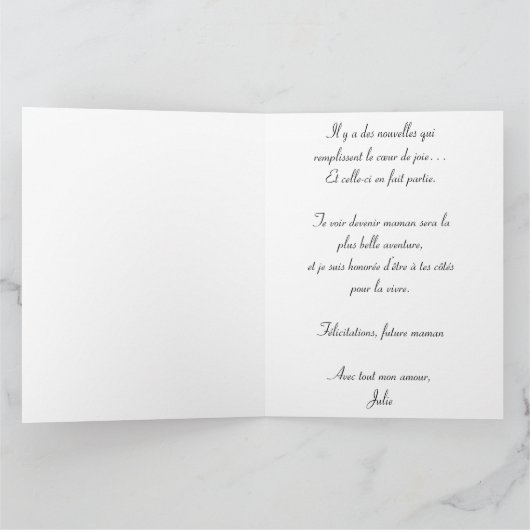 Il y a des nouvelles qui
remplissent le cœur de joie...
Et celle-ci en fait partie.
Te voir devenir maman sera la
plus belle aventure,
et je suis honorée d'être à tes côtés
pour la vivre.
Félicitations, future maman
Avec tout mon amour,
Julie